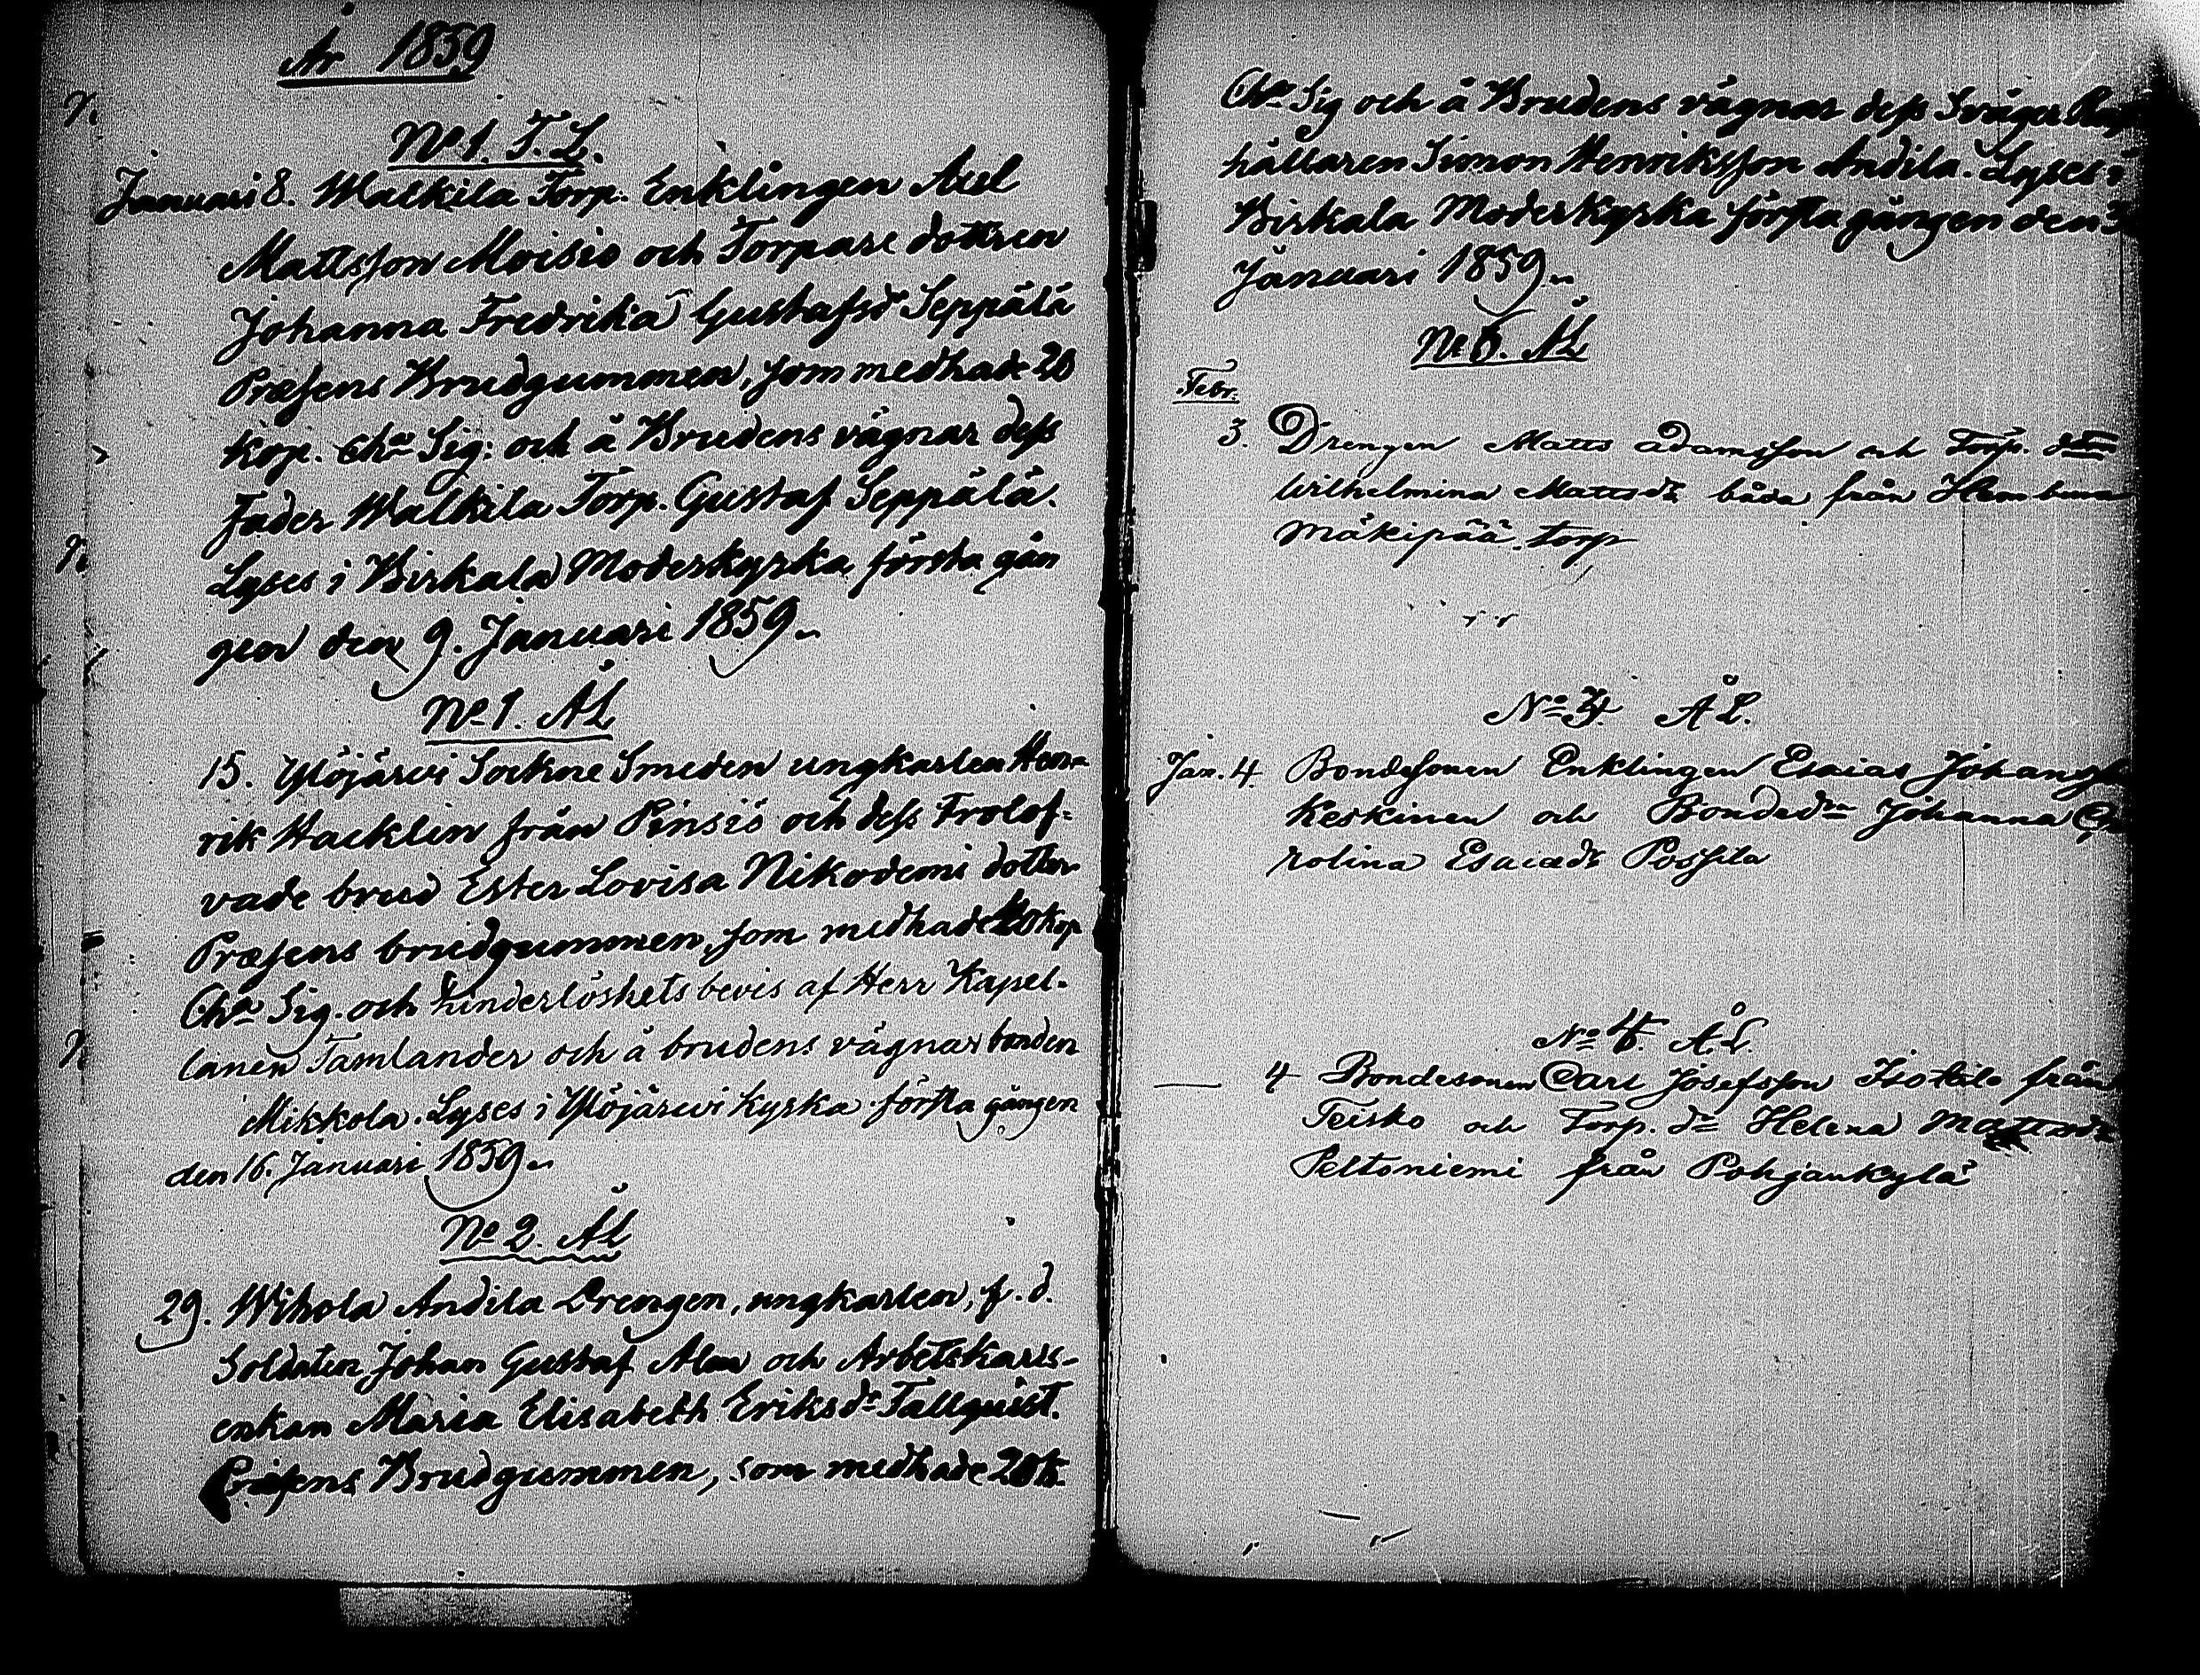 År 1859
No 1. T. L.
Januari 8. Walkila Torp. Enklingen Axel
Mattsson Moisio och Torpare dottren
Johanna Fredrika Gustafsdr Seppälä
Præsens Brudgummen, som medhade 20
kop. Cha Sig: och å Brudens vägnar dess
Fader Walkila Torp. Gustaf Seppälä.
Lyses i Birkala Moderkyrka första gån
gen den 9. Januari 1859.
No 1. ÅL
15. Ylöjärwi Sockne Smeden ungkarlen Hen-
rik Hacklin från Pinsiö och dess Trolof-
vade brud Ester Lovisa Nikodemi dotter
Præsens brudgummen, som medhade 20 kop
Cha Sig. och hinderlöshets bevis af Herr Kapel-
lanen Tamlander och å brudens vägnar bonden
Mikkola. Lyses i Ylöjärwi kyrka första gången
den 16. Januari 1859.
No 2. ÅL
29. Wihola Andila Drengen, ungkarlen, f. d.
Soldaten Johan Gustaf Alm och Arbetskarls-
enkan Maria Elisabeth Eriksdr Tallquist.
Præsens Brudgummen, som medhade 20 k.
Cha Sig och å Brudens vägnar dess Svåger
hållaren Simon Henriksson Andila. Lyses i
Birkala Moderkyrka första gången den 30
Januari 1859.
No 5. ÅL
Febr.
3. Drengen Matts Adamsson och Torp.
Wilhelmina Mattsdr båda från
Mäkipää torp
No 3. ÅL.
Jan. 4. Bondesonen Enklingen Esaias Johanss
Keskinen och Bondedrn Johanna Ca
rolina Esaiædr Possila
No 4. ÅL.
4 Bondesonen Carl Josefsson Isotalo från
Teisko och Torp. drn Helena Mattsdr
Peltoniemi från Pohjankylä